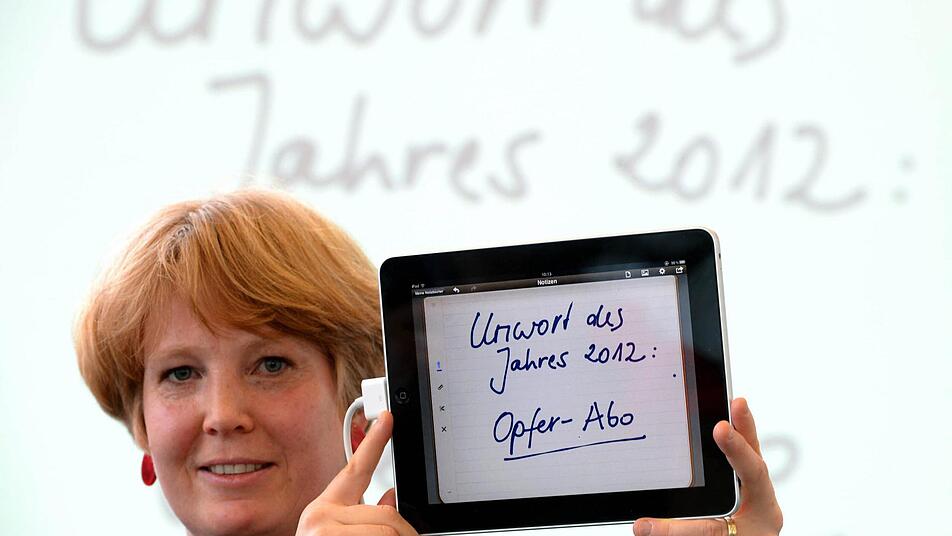 Unwort des
Jahres 2012:
iPad
10:13
Notizen
Meine Notizbücher
Unwort des
Jahres 2012:
Opfer-Abo